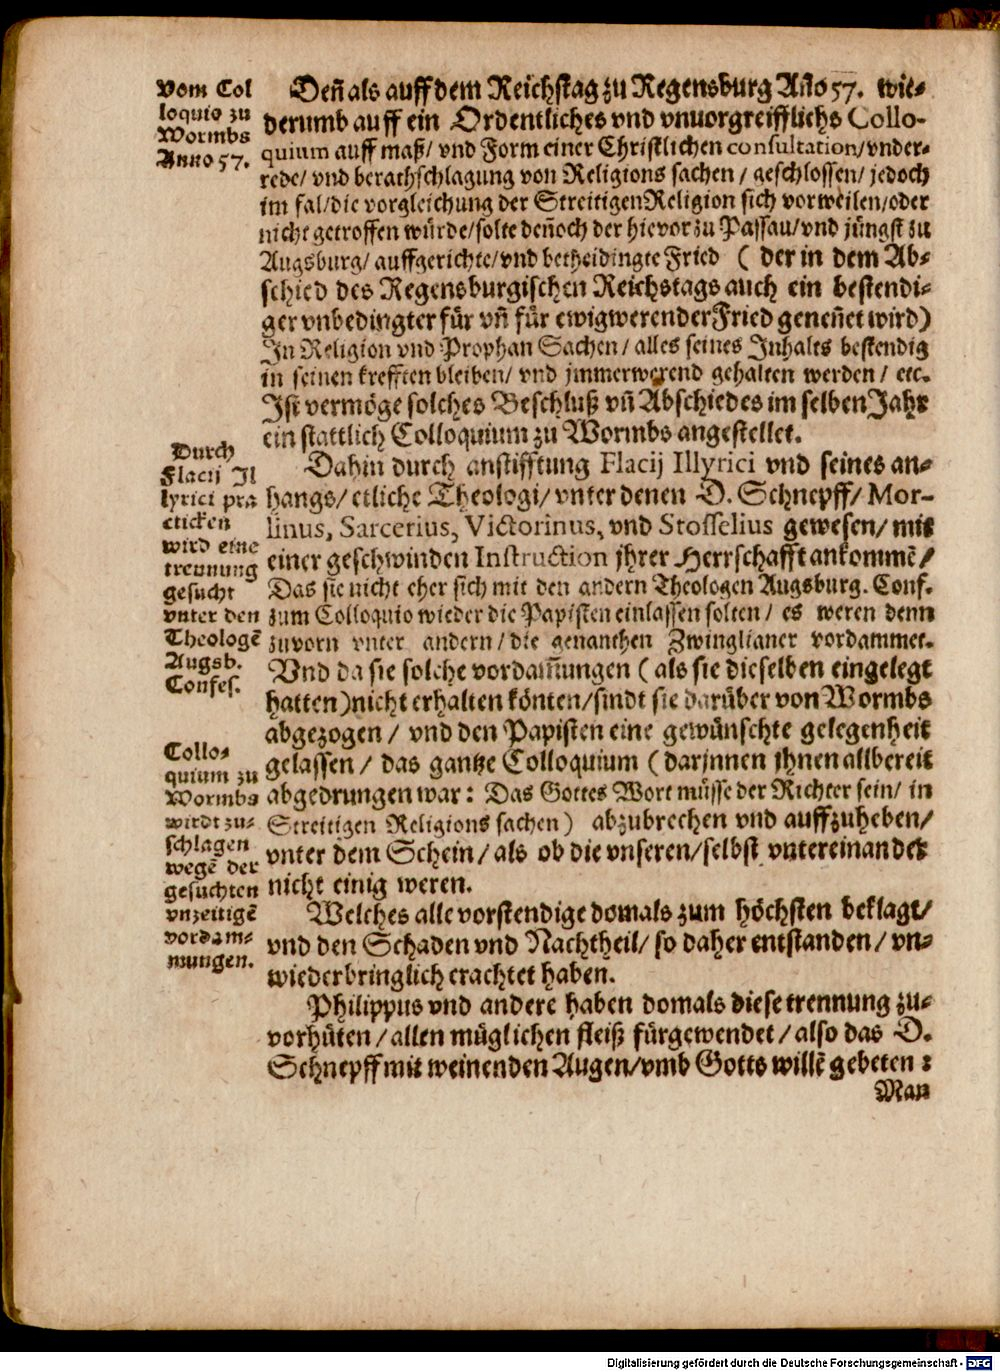 Vom Col
loquio zu
Wormbs
Anno 57.
Deñ als auff dem Reichstag zu Regensburg Año 57. wie-
derumb auff ein Ordentliches vnd vnuorgreifflichs Collo-
quium auff maß/ vnd Form einer Christlichen consultation/ vnder-
rede/ vnd berathschlagung von Religions sachen / geschlossen/ jedoch
im fal/ die vorgleichung der Streitigen Religion sich vorweilen/ oder
nicht getroffen würde/ solte deñoch der hievor zu Passau/ vnd jüngst zu
Augsburg/ auffgerichte/ vnd betheidingte Fried ( der in dem Ab-
schied des Regensburgischen Reichstags auch ein bestendi-
ger vnbedingter für vñ für ewigwerender Fried geneñet wird)
In Religion vnd Prophan Sachen / alles seines Inhalts bestendig
in seinen krefften bleiben/ vnd jmmerwerend gehalten werden / etc.
Ist vermöge solches Beschluß vñ Abschiedes im selben Jahr
ein stattlich Colloquium zu Wormbs angestellet.
Durch
Flacij Il
lyrici pra
cticken
wird eine
trennung
gesucht
vnter den
Theologē
Augsb.
Confes.
Dahin durch anstifftung Flacij Illyrici vnd seines an-
hangs/ etliche Theologi/ vnter denen D. Schnepff/ Mor-
linus, Sarcerius, Victorinus, vnd Stosselius gewesen/ mit
einer geschwinden Instruction jhrer Herrschafft ankommē/
Das sie nicht eher sich mit den andern Theologen Augsburg. Conf.
zum Colloquio wieder die Papisten einlassen solten / es weren denn
zuvorn vnter andern / die genanthen Zwinglianer vordammet.
Vnd da sie solche vordam̄ungen ( als sie dieselben eingelegt
hatten) nicht erhalten könten/ sindt sie darüber von Wormbs
abgezogen / vnd den Papisten eine gewünschte gelegenheit
Collo-
quium zu
Wormbs
wirdt zu-
schlagen
wegē der
gesuchten
vnzeitigē
vordam-
mungen.
gelassen / das gantze Colloquium ( darjnnen jhnen allbereit
abgedrungen war: Das Gottes Wort müsse der Richter sein/ in
Streitigen Religions sachen ) abzubrechen vnd auffzuheben/
vnter dem Schein / als ob die vnseren/ selbst vntereinander
nicht einig weren.
Welches alle vorstendige domals zum höchsten beklagt/
vnd den Schaden vnd Nachtheil/ so daher entstanden / vn-
wiederbringlich erachtet haben.
Philippus vnd andere haben domals diese trennung zu-
vorhüten / allen müglichen fleiß fürgewendet / also das D.
Schnepff mit weinenden Augen/ vmb Gotts willē gebeten :
Man
Digitalisierung gefördert durch die Deutsche Forschungsgemeinschaft - DFG